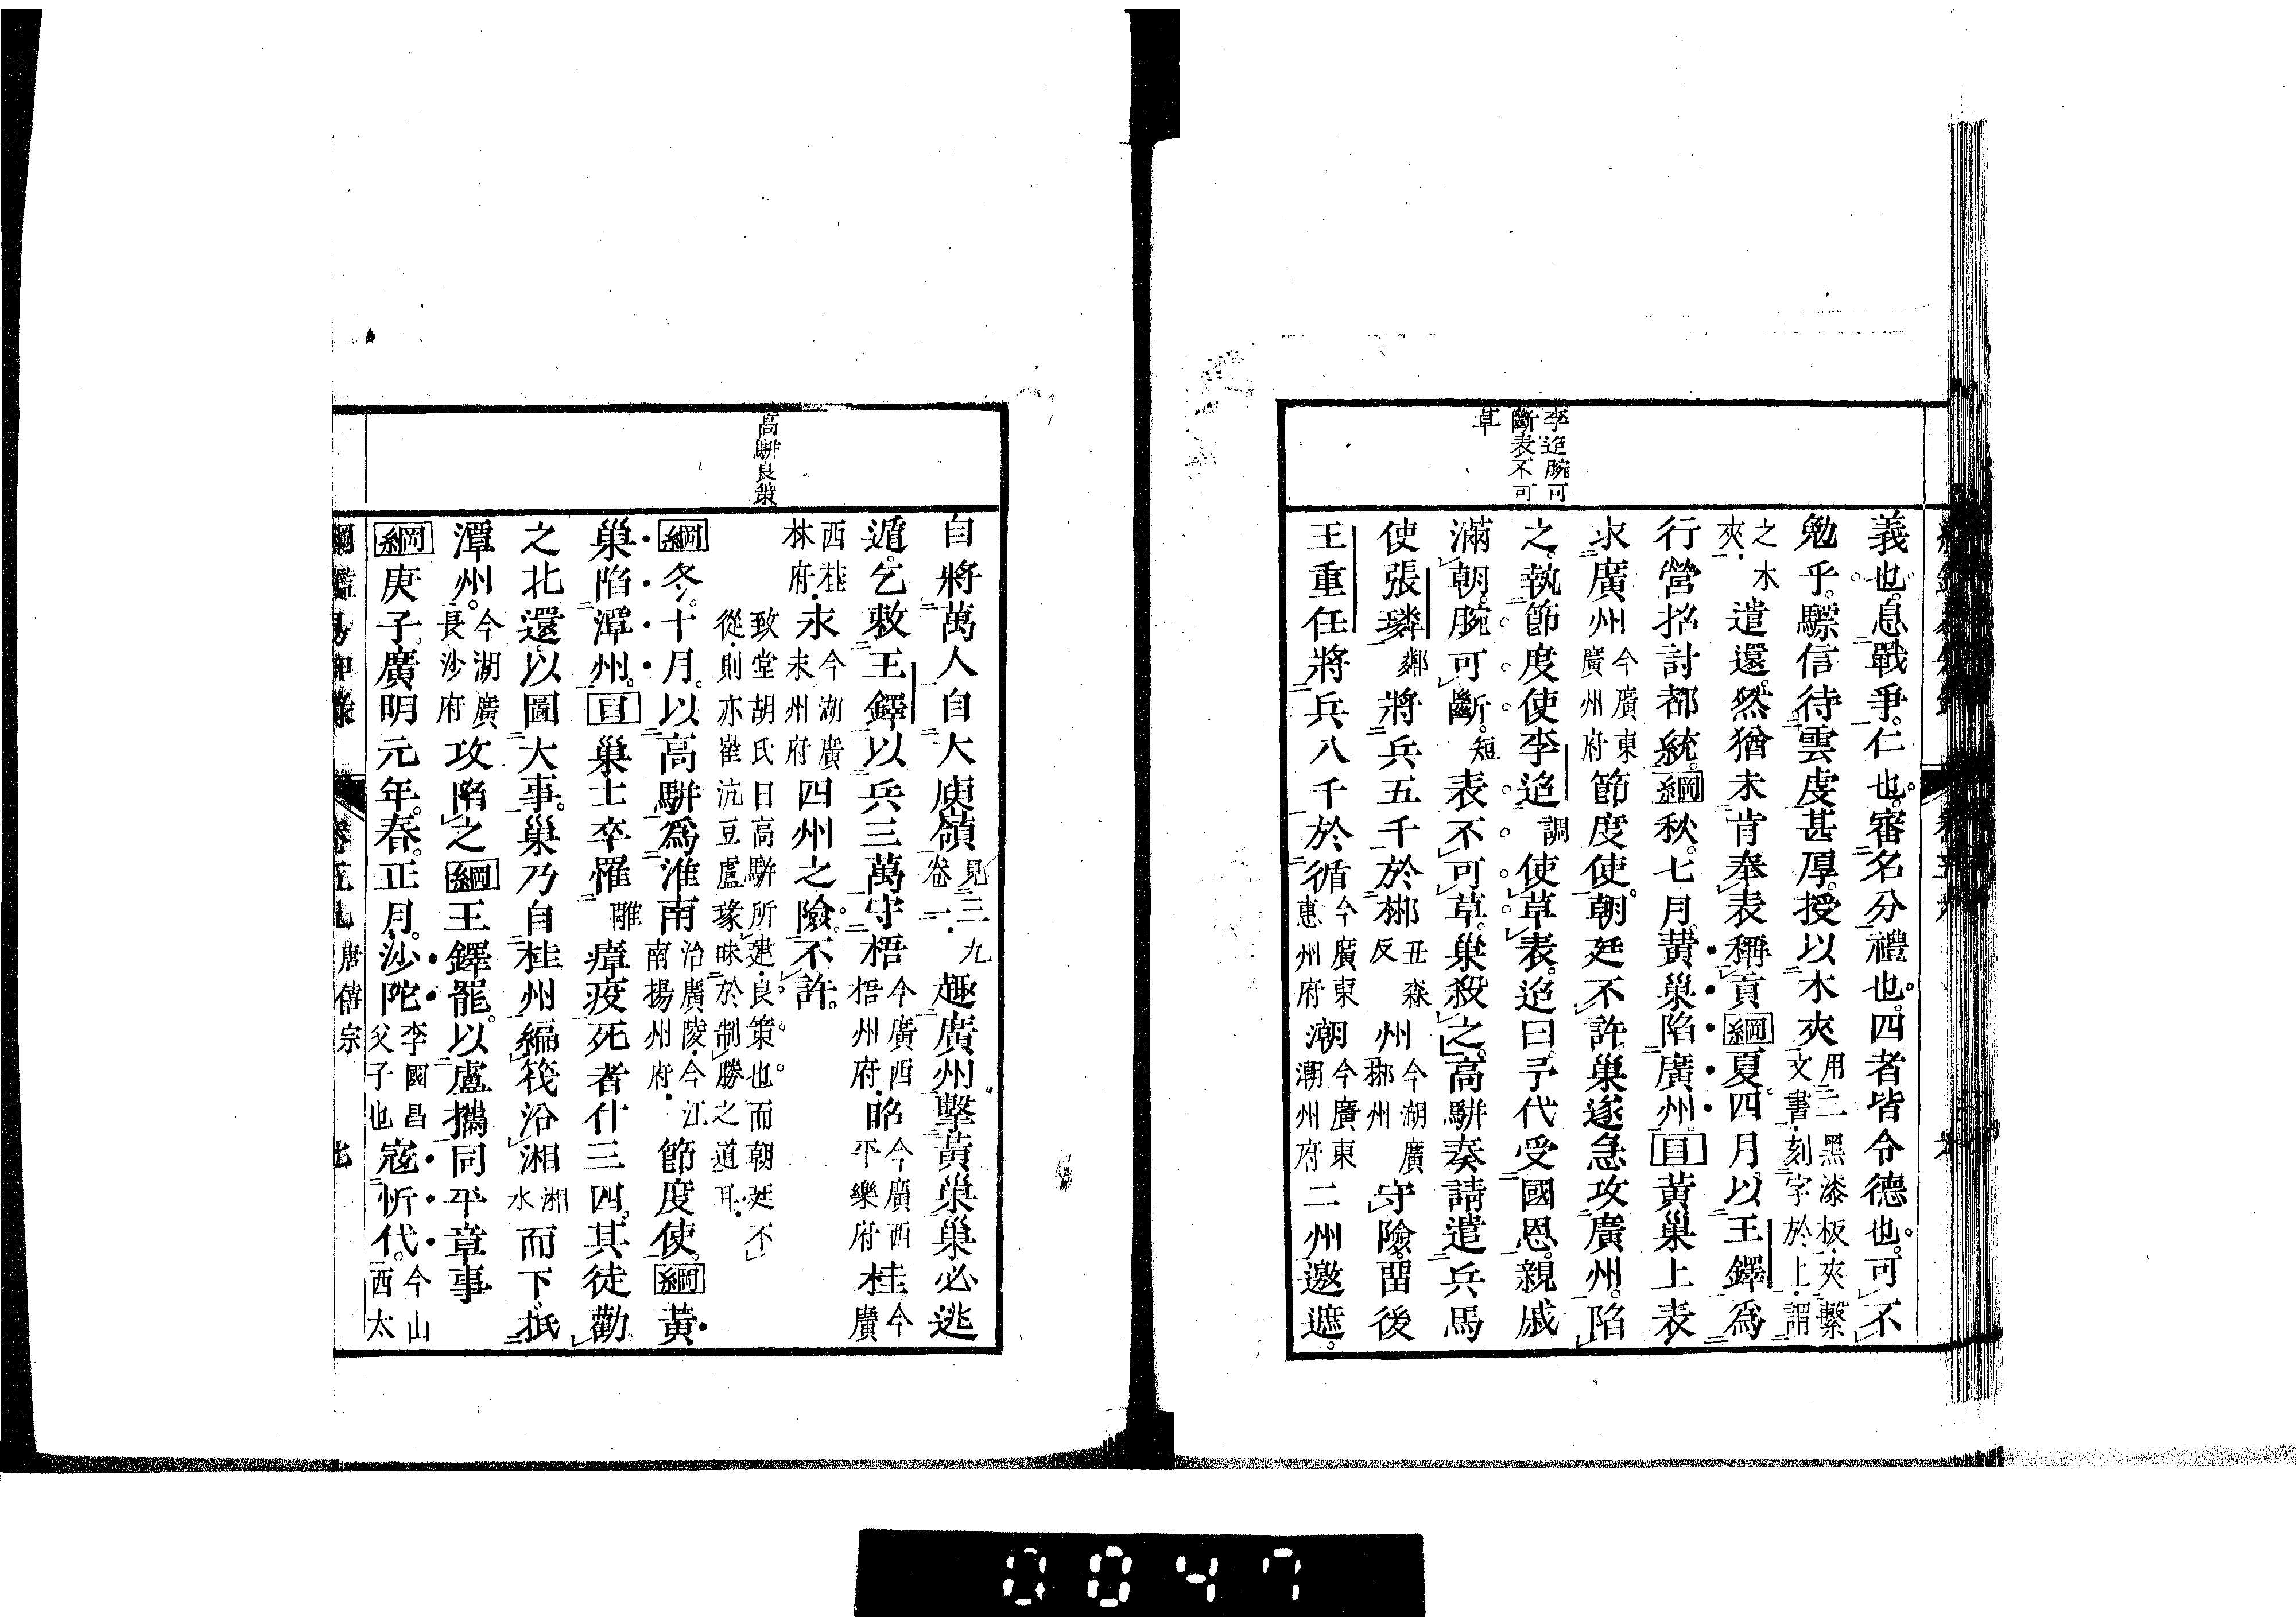 李迢腕可
斷表不可
草
義也。息戰爭。仁也。審名分。禮也。四者皆令德也。可不
勉乎。驃信待雲虔甚厚。授以木夾用二黑漆板。夾繫文書。刻字於上。謂
之木夾。遣還。然猶未肯奉表稱貢綱夏。四月。以王鐸爲
行營招討都統。綱秋。七月。黃巢陷廣州。目黃巢上表
求廣州今廣東廣州府節度使。朝廷不許。巢遂急攻廣州。陷
之。執節度使李迢調使草表。迢曰。予代受國恩。親戚
滿朝。腕可斷。短表不可草。巢殺之。高駢奏請遣兵馬
使張璘鄰將兵五千於郴丑森反州今湖廣郴州守險。留後
王重任將兵八千於循今廣東惠州府潮今廣東潮州府二州邀遮。
高駢良策
自將萬人自大庾嶺見三九卷一。趣廣州擊黃巢。巢必逃
遁。乞敕王鐸以兵三萬守梧今廣西梧州府。昭今廣西平樂府桂今廣
西桂林府。永今湖廣永州府四州之險。不許。
致堂胡氏曰高駢所建。良策也。而朝廷不
從。則亦崔沆豆盧瑑昧於制勝之道耳。
綱冬。十月。以高駢爲淮南治廣陵。今江南揚州府。節度使。綱黃
巢陷潭州。目巢士卒罹離瘴疫死者什三四。其徒勸
之北還。以圖大事。巢乃自桂州編筏沿湘湘水而下。抵
潭州。今湖廣長沙府攻陷之綱王鐸罷。以盧攜同平章事
綱庚子。廣明元年。春。正月。沙陀李國昌父子也寇忻代。今山西太
唐僖宗